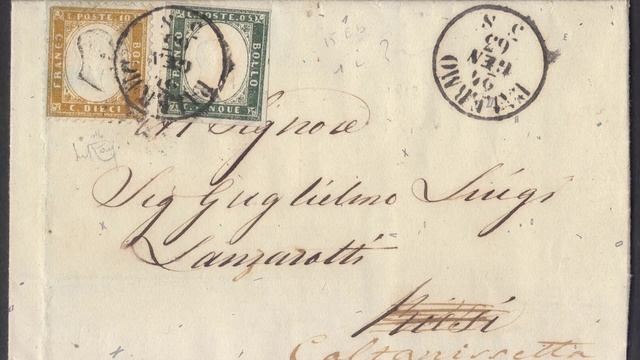 C. POSTE 10
FRANCO
BOLLO
C. DIECI
C. POSTE 05
FRANCO
BOLLO
C. CINQUE
PALERMO
GEN
63
3 S
Al Signore
Sig Guglielmo Luigi
Lanzarotti
Caltanissetta